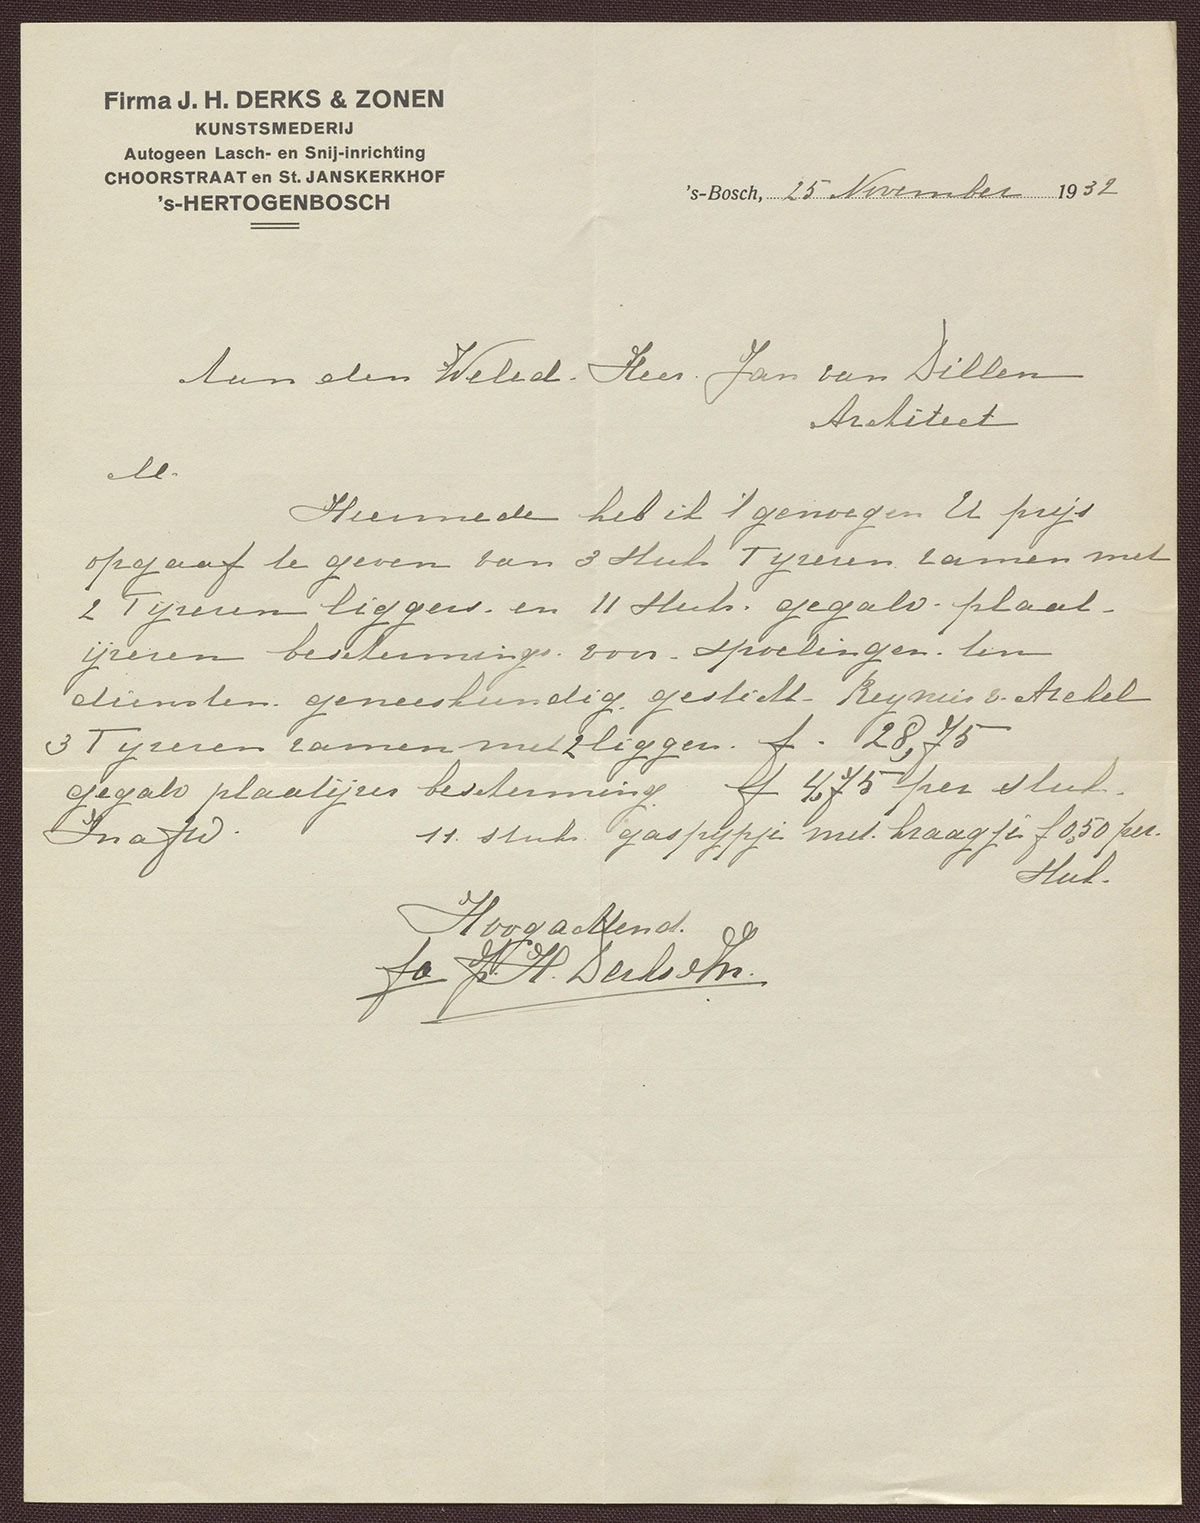 Firma J. H. DERKS & ZONEN
KUNSTSMEDERIJ
Autogeen Lasch- en Snij-inrichting
CHOORSTRAAT en St. JANSKERKHOF
's-HERTOGENBOSCH
's-Bosch, 25 November 1932
Aan den Weled. Heer. Jan van Dillen
Architect
M.
Hiermede heb ik 't genoegen U prijs
opgaaf te geven van 3 stuk IJzeren ramen met
2 IJzeren liggers. en 11 stuks. gegalv. plaat-
ijzeren beschermings. voor. spoelingen. ten
diensten. geneeskundig. gesticht. Reynier v. Arkel
3 IJzeren ramen met 2 ligger. f. 28,75
gegalv plaatijzer bescherming. f 4,75 per stuk.
11. stuks gaspypje met. kraagje f 0,50 per.
stuk.
Hoogachtend.
fa J. H. Derks & Zn.